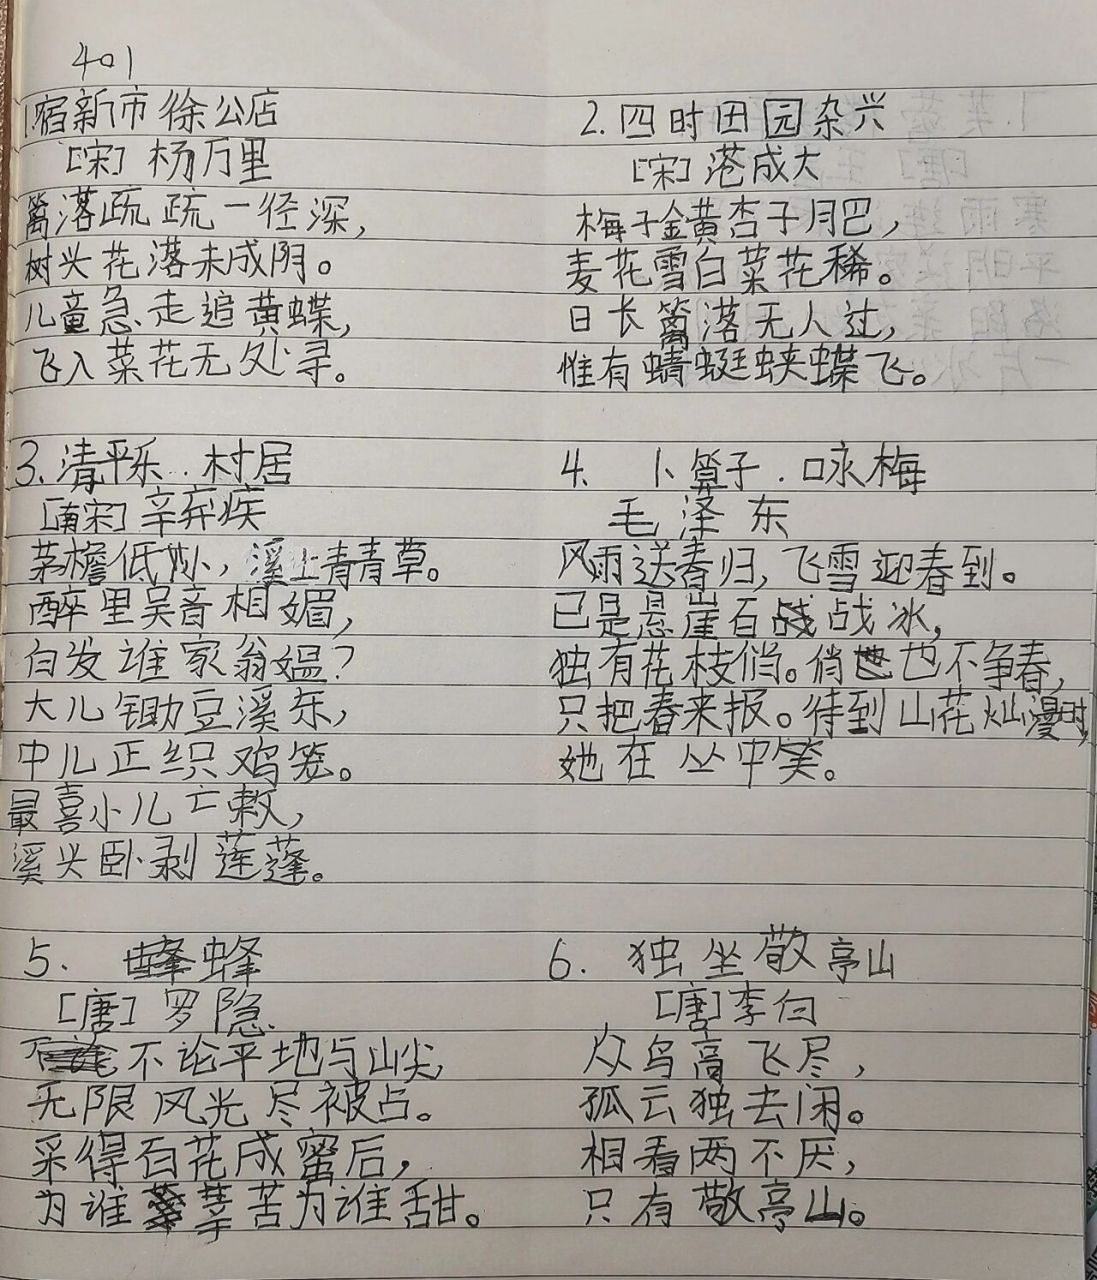 401
1.宿新市徐公店
[宋] 杨万里
篱落疏疏一径深,
树头花落未成阴。
儿童急走追黄蝶,
飞入菜花无处寻。
2.四时田园杂兴
[宋] 范成大
梅子金黄杏子月巴,
麦花雪白菜花稀。
日长篱落无人过,
惟有蜻蜓蛱蝶飞。
3.清平乐..村居
[南宋] 辛弃疾
茅檐低小,溪上青青草。
醉里吴音相媚,
白发谁家翁媪?
大儿锄豆溪东,
中儿正织鸡笼。
最喜小儿亡赖,
溪头卧剥莲蓬。
4. 卜算子.咏梅
毛泽东
风雨送春归,飞雪迎春到。
已是悬崖百战冰,
独有花枝俏。俏也不争春,
只把春来报。待到山花灿漫时,
她在丛中笑。
5. 蜂
[唐] 罗隐
不论平地与山尖,
无限风光尽被占。
采得百花成蜜后,
为谁辛苦为谁甜。
6. 独坐敬亭山
[唐] 李白
众鸟高飞尽,
孤云独去闲。
相看两不厌,
只有敬亭山。